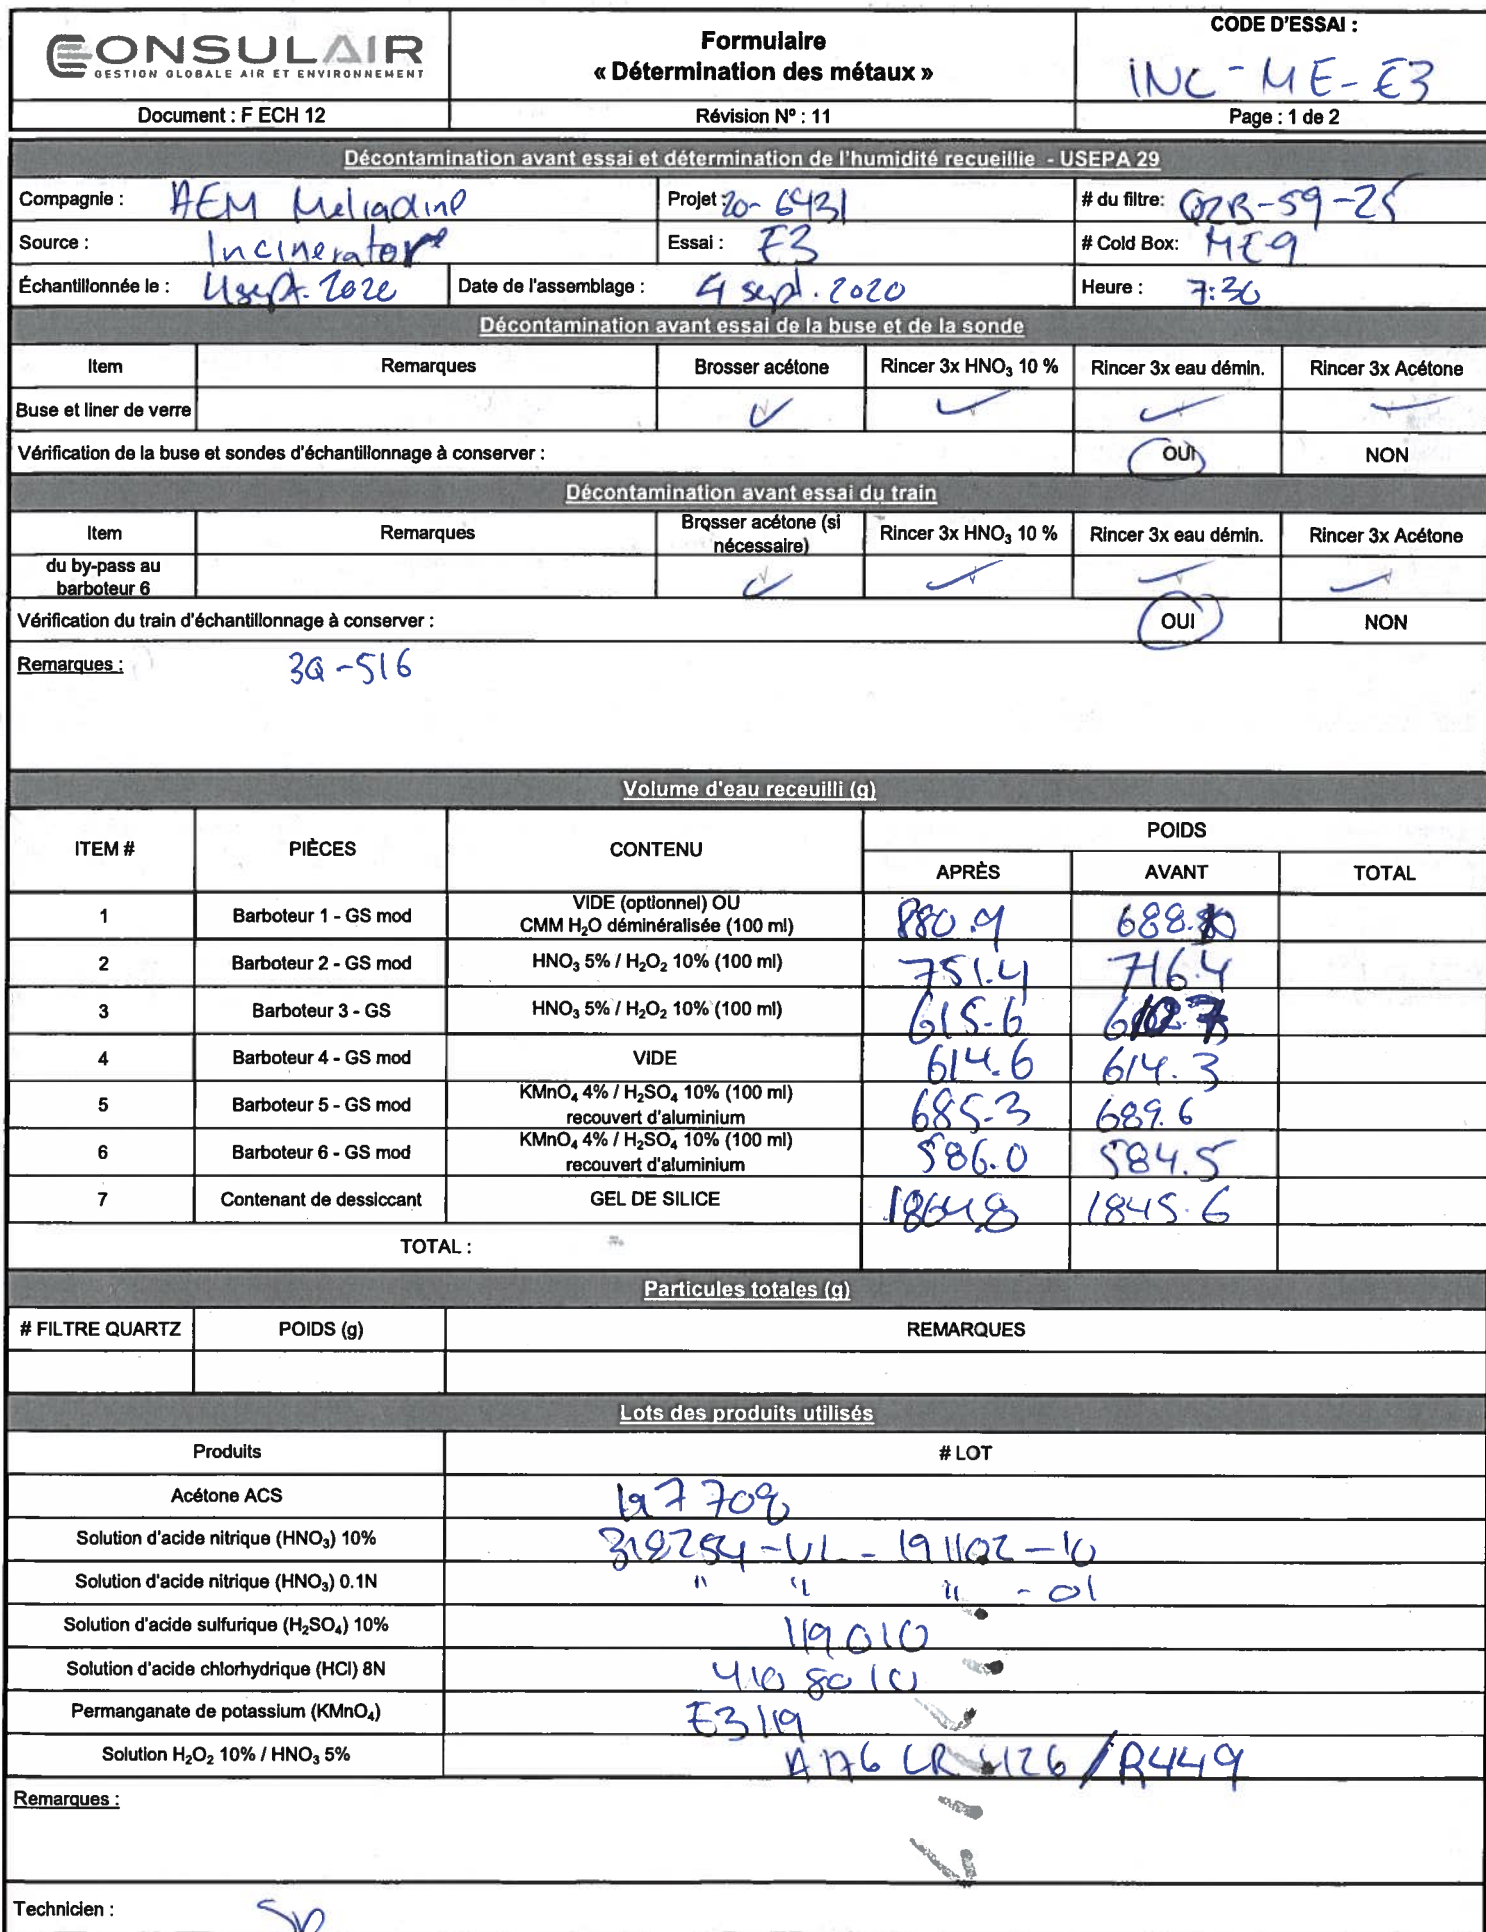 CONSULAIR
GESTION GLOBALE AIR ET ENVIRONNEMENT
Formulaire
« Détermination des métaux »
CODE D'ESSAI :
INC-ME-E3
Document : F ECH 12
Révision Nº : 11
Page : 1 de 2
Décontamination avant essai et détermination de l'humidité recueillie - USEPA 29
Compagnie : AEM Meliadine
Projet : 20-6431
# du filtre: QZB-59-25
Source : Incinerator
Essai : E3
# Cold Box: ME9
Échantillonnée le : 4 sept. 2020
Date de l'assemblage : 4 sept. 2020
Heure : 7:30
Décontamination avant essai de la buse et de la sonde
Item Remarques Brosser acétone Rincer 3x HNO₃ 10 % Rincer 3x eau démin. Rincer 3x Acétone
Buse et liner de verre ✓ ✓ ✓ ✓
Vérification de la buse et sondes d'échantillonnage à conserver : OUI NON
Décontamination avant essai du train
Item Remarques Brosser acétone (si nécessaire) Rincer 3x HNO₃ 10 % Rincer 3x eau démin. Rincer 3x Acétone
du by-pass au barboteur 6 ✓ ✓ ✓ ✓
Vérification du train d'échantillonnage à conserver : OUI NON
Remarques : 3Q-516
Volume d'eau receuilli (g)
ITEM # PIÈCES CONTENU POIDS
APRÈS AVANT TOTAL
1 Barboteur 1 - GS mod VIDE (optionnel) OU CMM H₂O déminéralisée (100 ml) 880.9
2 Barboteur 2 - GS mod HNO₃ 5% / H₂O₂ 10% (100 ml) 751.4 716.4
3 Barboteur 3 - GS HNO₃ 5% / H₂O₂ 10% (100 ml) 615.6
4 Barboteur 4 - GS mod VIDE 614.6 614.3
5 Barboteur 5 - GS mod KMnO₄ 4% / H₂SO₄ 10% (100 ml) recouvert d'aluminium 685.3 689.6
6 Barboteur 6 - GS mod KMnO₄ 4% / H₂SO₄ 10% (100 ml) recouvert d'aluminium 586.0 584.5
7 Contenant de dessiccant GEL DE SILICE 1864.8 1845.6
TOTAL :
Particules totales (g)
# FILTRE QUARTZ POIDS (g) REMARQUES
Lots des produits utilisés
Produits # LOT
Acétone ACS
Solution d'acide nitrique (HNO₃) 10% 318254-UL-191102-10
Solution d'acide nitrique (HNO₃) 0.1N " " " -01
Solution d'acide sulfurique (H₂SO₄) 10% 119010
Solution d'acide chlorhydrique (HCl) 8N
Permanganate de potassium (KMnO₄) E3119
Solution H₂O₂ 10% / HNO₃ 5% /R449
Remarques :
Technicien :